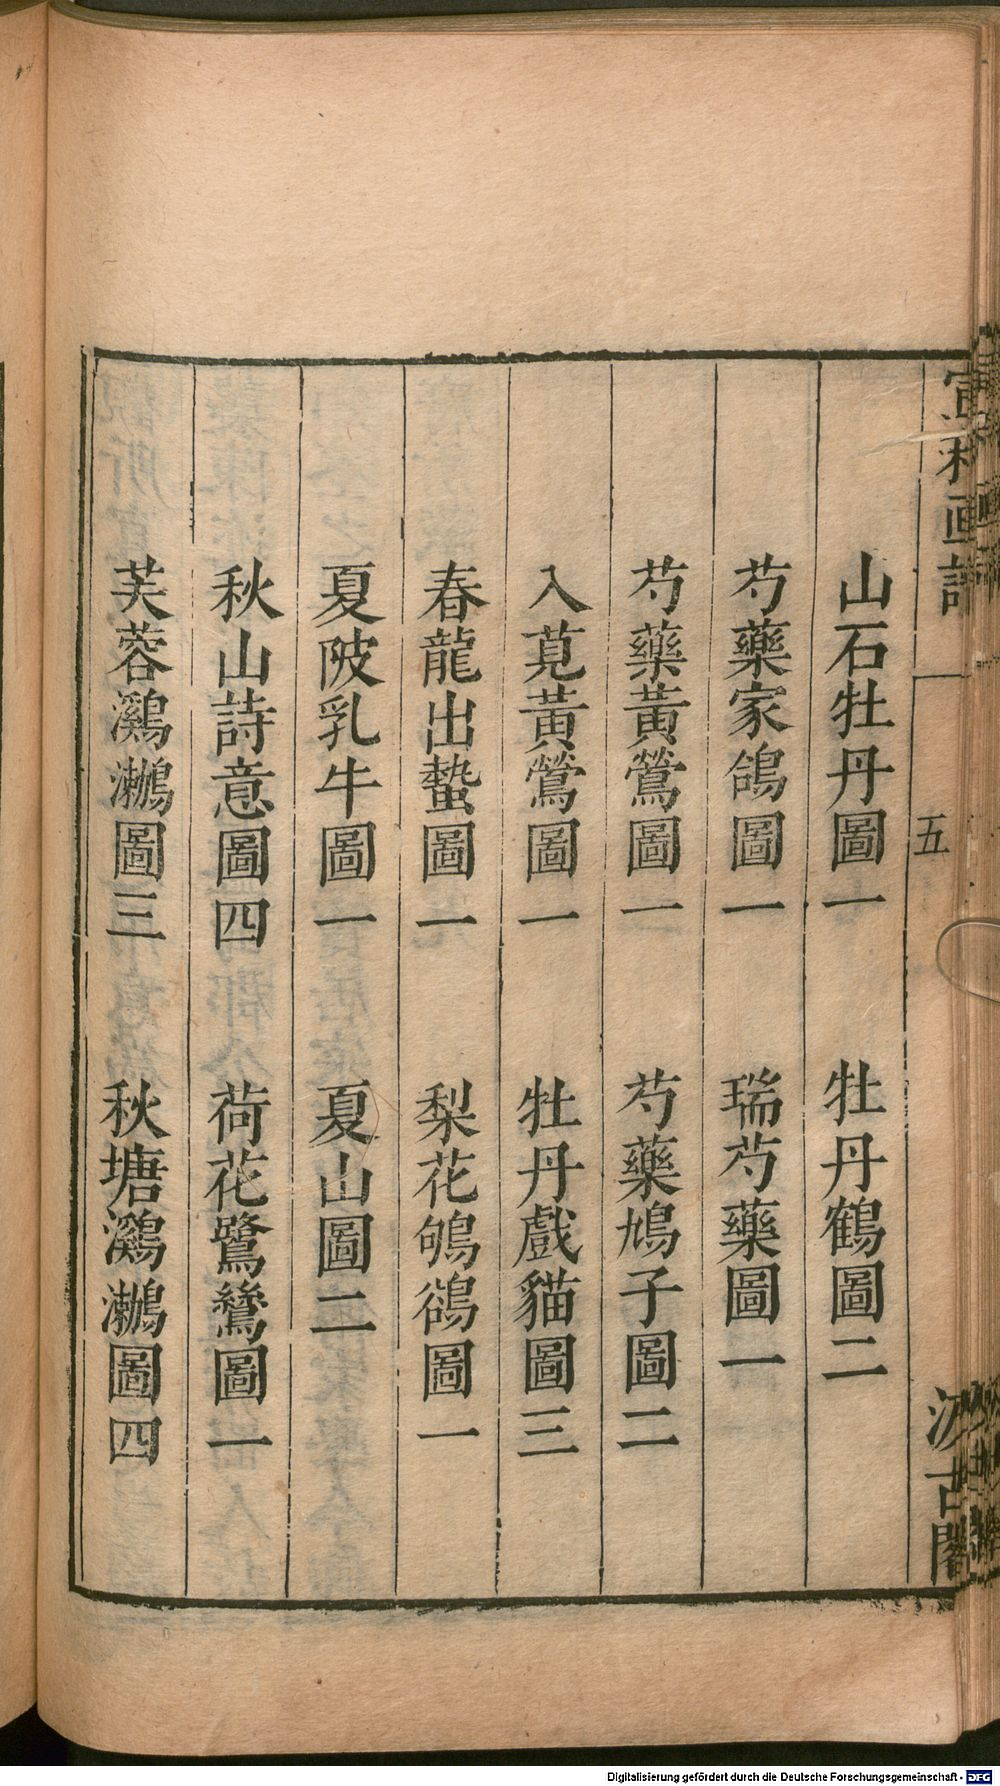 山石牡丹圖一　牡丹鶴圖二
芍藥家鴿圖一　瑞芍藥圖一
芍藥黃鶯圖一　芍藥鳩子圖二
入莧黃鶯圖一　牡丹戲貓圖三
春龍出蟄圖一　梨花鵓鴿圖一
夏陂乳牛圖一　夏山圖二
秋山詩意圖四　荷花鷺鷥圖一
芙蓉鸂鷘圖三　秋塘鸂鷘圖四
宣和画譜　五　汲古閣
Digitalisierung gefördert durch die Deutsche Forschungsgemeinschaft - DFG